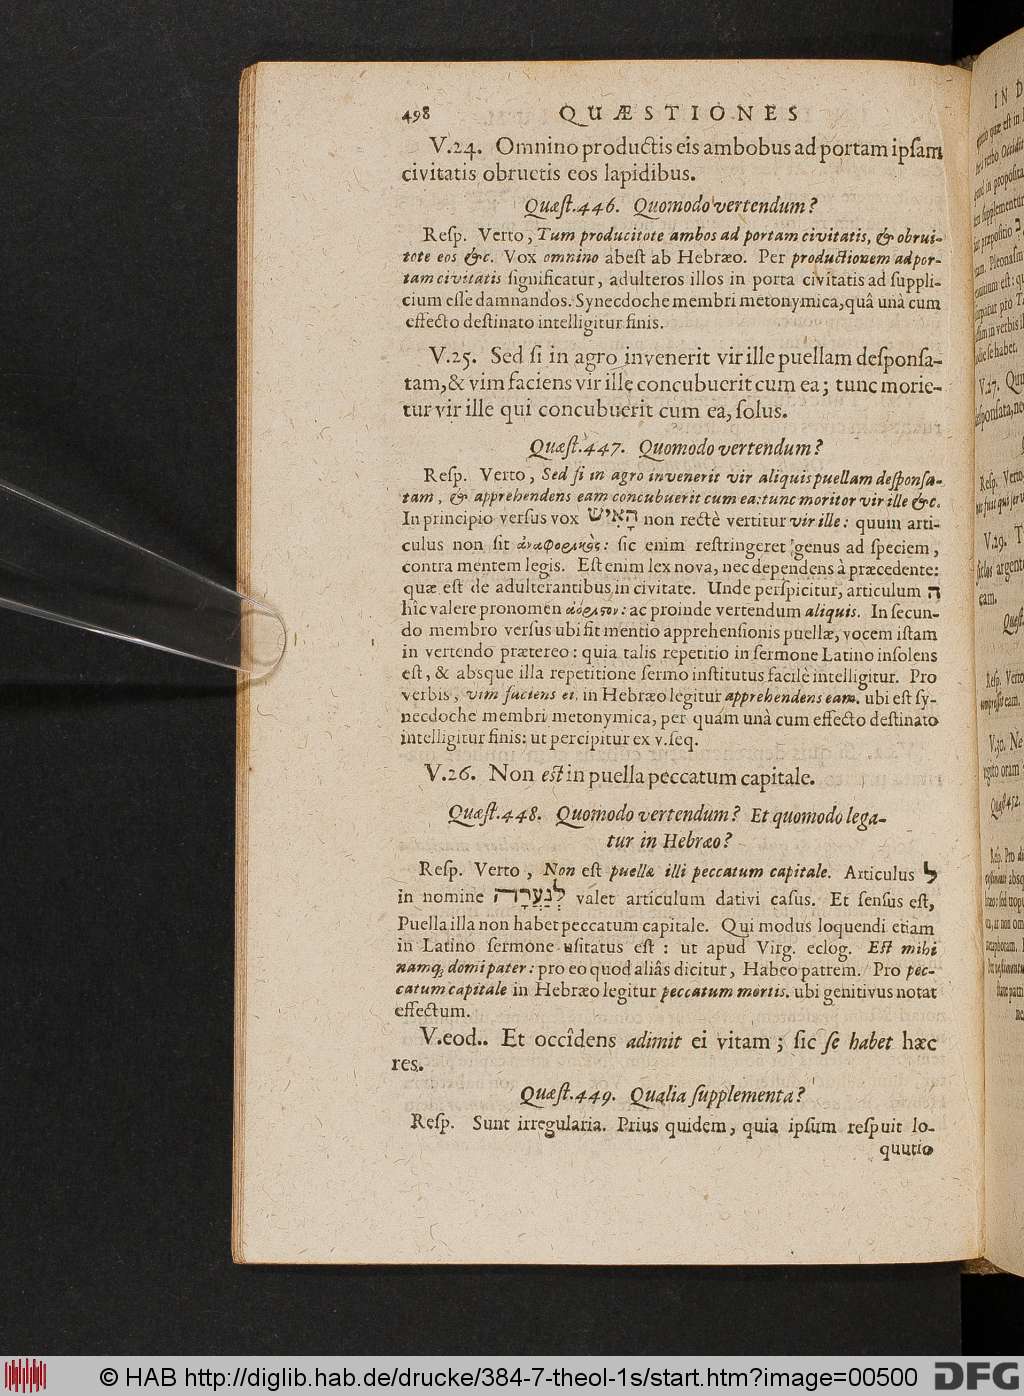 498 QUÆSTIONES
V.24. Omnino productis eis ambobus ad portam ipſam
civitatis obruetis eos lapidibus.
Quæſt.446. Quomodo vertendum?
Reſp. Verto, Tum producitote ambos ad portam civitatis, & obrui-
tote eos &c. Vox omnino abeſt ab Hebræo. Per productionem ad por-
tam civitatis ſignificatur, adulteros illos in porta civitatis ad ſuppli-
cium eſſe damnandos. Synecdoche membri metonymica, quâ unà cum
effecto deſtinato intelligitur finis.
V.25. Sed ſi in agro invenerit vir ille puellam deſponſa-
tam, & vim faciens vir ille concubuerit cum ea; tunc morie-
tur vir ille qui concubuerit cum ea, ſolus.
Quæſt.447. Quomodo vertendum?
Reſp. Verto, Sed ſi in agro invenerit vir aliquis puellam deſponſa-
tam, & apprehendens eam concubuerit cum ea: tunc moritor vir ille &c.
In principio verſus vox הָאִישׁ non rectè vertitur vir ille: quum arti-
culus non ſit ἀναφορικὸς: ſic enim reſtringeret genus ad ſpeciem,
contra mentem legis. Eſt enim lex nova, nec dependens à præcedente:
quæ eſt de adulterantibus in civitate. Unde perſpicitur, articulum ה
hîc valere pronomen ἀόριστον: ac proinde vertendum aliquis. In ſecun-
do membro verſus ubi fit mentio apprehenſionis puellæ, vocem iſtam
in vertendo prætereo: quia talis repetitio in ſermone Latino inſolens
eſt, & absque illa repetitione ſermo inſtitutus facilè intelligitur. Pro
verbis, vim faciens ei, in Hebræo legitur apprehendens eam. ubi eſt ſy-
necdoche membri metonymica, per quam unà cum effecto deſtinato
intelligitur finis: ut percipitur ex v.ſeq.
V.26. Non est in puella peccatum capitale.
Quæſt.448. Quomodo vertendum? Et quomodo lega-
tur in Hebræo?
Reſp. Verto, Non eſt puellæ illi peccatum capitale. Articulus ל
in nomine לְנַעֲרָה valet articulum dativi caſus. Et ſenſus eſt,
Puella illa non habet peccatum capitale. Qui modus loquendi etiam
in Latino ſermone uſitatus eſt: ut apud Virg. eclog. Est mihi
namq; domi pater: pro eo quod aliâs dicitur, Habeo patrem. Pro pec-
catum capitale in Hebræo legitur peccatum mortis. ubi genitivus notat
effectum.
V.eod.. Et occîdens adimit ei vitam; ſic ſe habet hæc
res.
Quæſt.449. Qualia ſupplementa?
Reſp. Sunt irregularia. Prius quidem, quia ipſum reſpuit lo-
quutio
IN D
V.27. Quu
Reſp. Verto
V.29. T
ſiclos argent
eam.
Quæſt.
Reſp. Verto
V.30. Ne
Quæſt 452.
© HAB http://diglib.hab.de/drucke/384-7-theol-1s/start.htm?image=00500
DFG